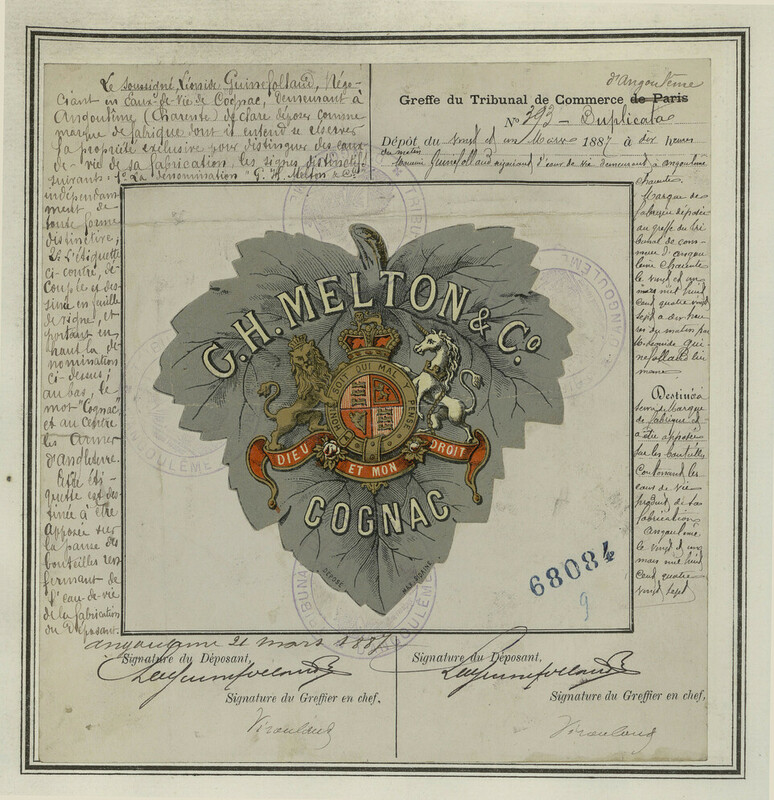 Le soussigné, Léonide Guinefollaud, Négo-
ciant en Eaux-de-Vie de Cognac, demeurant à
Angoulême (Charente) déclare déposer comme
marque de fabrique dont il entend se réserver
la propriété exclusive pour distinguer des eaux-
de-vie de sa fabrication, les signes distinctifs
suivants: 1º La dénomination "G. H. Melton & Co"
indépendam-
ment de
toute forme
distinctive,
2º L'étiquette
ci-contre, dé-
coupée et des-
sinée en feuille
de vigne, et
portant en
haut la dé-
nomination
ci-dessus;
au bas, le
mot "Cognac"
et au Centre
les Armes
d'Angleterre.
Cette éti-
quette est des-
tinée à être
apposée sur
la panse des
bouteilles ren-
fermant de
l'eau-de-vie
de la fabrication
du Déposant.
d'Angoulême
Greffe du Tribunal de Commerce de Paris
Nº 393 - Duplicata
Dépôt du vingt et un Mars 1887 à dix heures
du matin
Guinefollaud négociant d'eaux de vie demeurant à angoulême
charente.
Marque de
fabrique déposée
au greffe du tri
bunal de com-
merce d'angou
lême charente
le vingt et un
mars mil huit
cent quatre vingt
sept à dix heu
res du matin par
Mr Léonide Gui
nefollaud lui
même
Destinée
à être apposée
sur les bouteilles
contenant les
eaux de vie
produit de sa
fabrication
Angoulême
le vingt et un
mars mil huit
cent quatre
vingt sept
G.H. MELTON & Co.
HONI SOIT QUI MAL Y PENSE
DIEU ET MON DROIT
COGNAC
DEPOSÉ
68084
9
angoulême 21 mars 1887
Signature du Déposant,
Signature du Déposant,
Signature du Greffier en chef,
Signature du Greffier en chef,
TRIBUNAL
ANGOULÊME